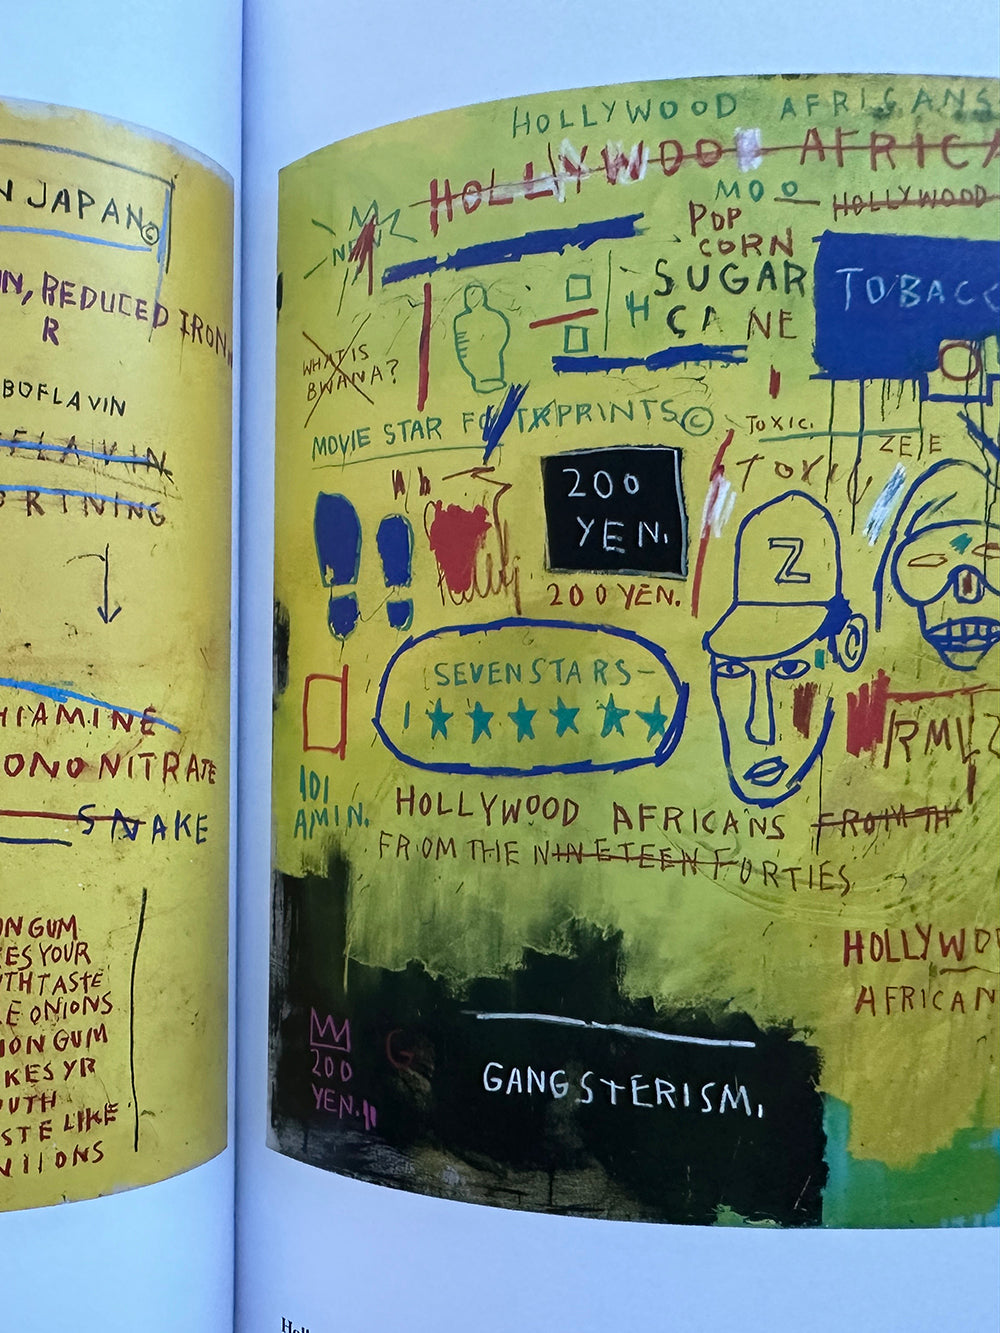 N JAPAN©
N, REDUCED IRON,
R
BOFLAVIN
FLAVIN
ORTNING
HIAMINE
ONONITRATE
SNAKE
ON GUM
ES YOUR
TH TASTE
E ONIONS
ION GUM
KES YR
OUTH
STE LIKE
NIIONS
HOLLYWOOD AFRICANS
HOLLYWOOD AFRICA
MOO
HOLLYWOOD
NEW
POP
CORN
SUGAR
CANE
H
TOBACC
WHAT IS
BWANA?
MOVIE STAR FOOTPRINTS©
TOXIC.
ZEE
TOXIC
200
YEN.
200 YEN.
Z
SEVEN STARS
1 ★ ★ ★ ★ ★ ★
RMLZ
IDI
AMIN.
HOLLYWOOD AFRICANS FROM TH
FROM THE NINETEEN FORTIES
HOLLYWO
AFRICAN
200
YEN.
G
GANGSTERISM.